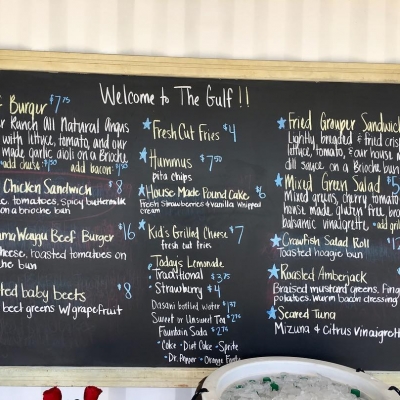 Welcome to The Gulf!!
Burger $7.75
Ranch All Natural Angus
with lettuce, tomato, and our
made garlic aioli on a Brioche
add cheese add bacon
Chicken Sandwich $8
tomatoes, spicy buttermilk
on a brioche bun
Wagyu Beef Burger $16
cheese, roasted tomatoes on
bun
baby beets $8
beet greens w/grapefruit
Fresh Cut Fries $4
Hummus $7.50
pita chips
House Made Pound Cake $6
Fresh Strawberries & vanilla whipped
cream
Kid's Grilled Cheese $7
fresh cut fries
Today's Lemonade
Traditional $3.75
Strawberry $4
Dasani bottled water
Sweet or Unsweet Tea
Fountain Soda
Coke • Diet Coke • Sprite
• Dr. Pepper • Orange
Fried Grouper Sandwich
Lightly breaded & fried crisp
lettuce, tomato, & our house
dill sauce on a Brioche bun
Mixed Green Salad $5
Mixed greens, cherry tomato
house made gluten free
balsamic vinaigrette.
Crawfish Salad Roll $12
Toasted hoagie bun
Roasted Amberjack
Braised mustard greens,
potatoes. Warm bacon dressing
Seared Tuna
Mizuna & Citrus Vinaigrette